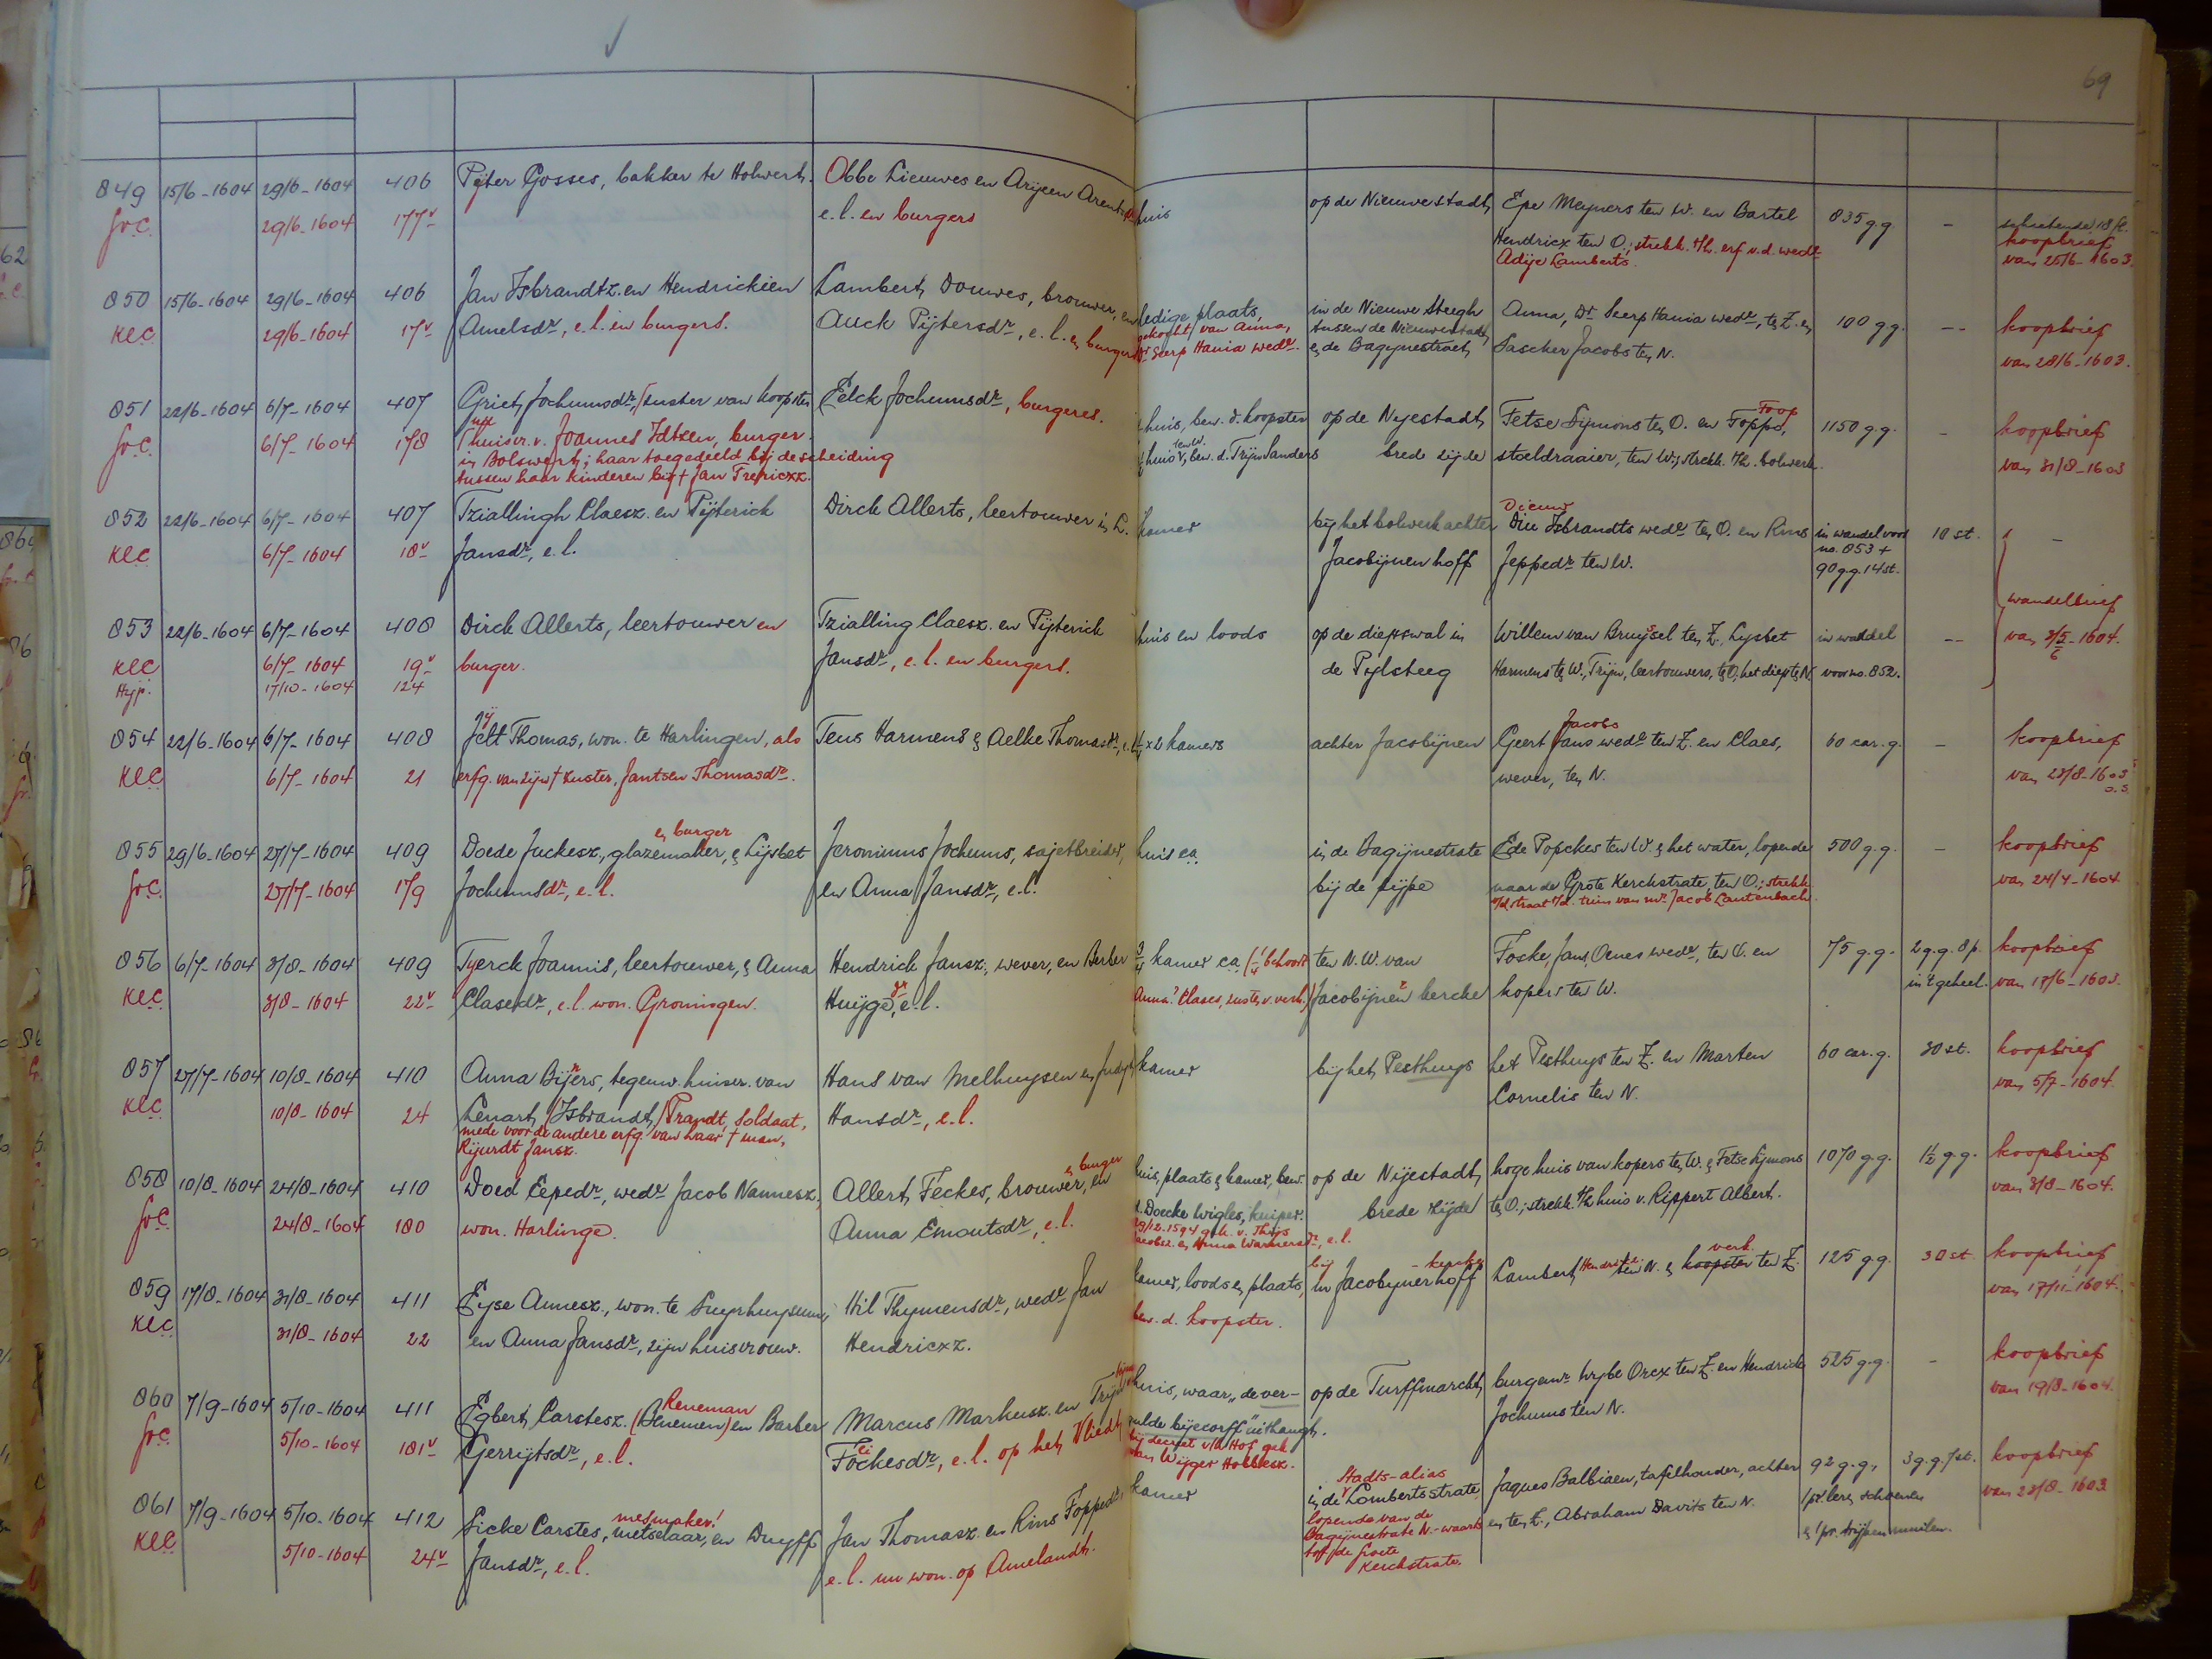 69
849 15/6-1604 29/6-1604 406 Pyter Gosses, bakker te Holwert. Obbe Lieuwes en Arijaen Arents huis op de Nieuwestadt Epe Meyners ten W. en Bartel 835 g.g. -
Gr.C. 29/6-1604 177v e.l. en burgers Hendricx ten O.; strekk. t/h. erf v.d. wedr koopbrief
Adije Lamberts. van 25/6-1603.
850 15/6-1604 29/6-1604 406 Jan Isbrandtz. en Hendrickien Lambert Douwes, brouwer, en ledige plaats, in de Nieuwe Steegh Anna, Dr Seerp Hania wedr, ten Z. en 100 gg. -- koopbrief
KLC 29/6-1604 17v Amelsdr, e.l. en burgers. Auck Pijtersdr, e.l. en burgers gekoft van Anna, tussen de Nieuwestadt Sascker Jacobs ten N. van 28/6-1603.
Dr Seerp Hania wedr. en de Bagijnestraet
851 22/6-1604 6/7-1604 407 Griet Jochumsdr, zuster van koopster Eelck Jochumsdr, burgeres. huis, bew. d. koopster op de Nyestadt Fetse Sijmons ten O. en Foppo, Foop 1150 g.g. - koopbrief
Gr.C. 6/7-1604 178 huisvr. v. Joannes Idtzen, burger huis ten W., bew. d. Trijn Sanders brede zijde stoeldraaier, ten W.; strekk. t/h. bolwerk. van 31/8-1603
in Bolswert; haar toegedeeld bij de scheiding
tussen haar kinderen bij † Jan Frericxz.
852 22/6-1604 6/7-1604 407 Tziallingh Claesz. en Pijterick Dirck Allerts, leertouwer in L. kamer bij het bolwerk achter Dieuw Diu Isbrandts wedr ten O. en Rins in wandel voor 10 st. -
KLC 6/7-1604 18v Jansdr, e.l. Jacobijnen hoff Jeppedr ten W. no. 853 +
90 g.g. 14 st.
853 22/6-1604 6/7-1604 408 Dirck Allerts, leertouwer en Tzialling Claesz. en Pijterick huis en loods op de diepswal in Willem van Bruyssel ten Z. Lysbet in wandel -- wandelbrief
KLC 6/7-1604 19v burger. Jansdr, e.l. en burgers. de Pylsteeg Harmens ten W., Trijn, leertouwers, ten O., het diep ten N. voor no. 852. van
Hyp. 17/10-1604 124
854 22/6-1604 6/7-1604 408 Jelt Thomas, won. te Harlingen, als Teus Harmens & Aelke Thomasdr, e.l. x 2 kamers achter Jacobijnen Geert Jacobs Jans wedr ten Z. en Claes, 60 car.g. - koopbrief
KLC 6/7-1604 21 erfg. van zijn † zuster, Jantsen Thomasdr. wever, ten N. van 28/8-1603
o.s.
855 29/6-1604 27/7-1604 409 Doede Juckesz., glazemaker, en burger & Lijsbet Jeronimus Jochums, sajetbreider, huis ca. in de Bagijnestrate Ede Popckes ten W & het water, lopende 500 g.g. - koopbrief
Gr.C. 27/7-1604 179 Jochumsdr, e.l. en Anna Jansdr, e.l. bij de pijpe naar de Grote Kerckstrate, ten O.; strekk. van 24/4-1604
v/d straat t/d. tuin van mr Jacob Lautenbach.
856 6/7-1604 3/8-1604 409 Tyerck Joannis, leertouwer, & Anna Hendrick Jansz., wever, en Berber 3/4 kamer ca (1/4 behoort ten N.W. van Foske, Jans Oenes wedr, ten O. en 75 g.g. 2 g.g. 8 p. koopbrief
KLC 3/8-1604 22v Clasedr, e.l. won. Groningen. Huijgedr, e.l. Anna Clases, zuster v. verk.) Jacobijner kercke kopers ten W. in 't geheel. van 17/6-1603.
857 27/7-1604 10/8-1604 410 Anna Bijers, tegenw. huisvr. van Hans van Melhuysen en Judyth kamer bij het Pesthuys het Pesthuys ten Z. en Marten 60 car.g. 30 st. koopbrief
KLC 10/8-1604 24 Lenart Isbrandt Prandt, soldaat, Hansdr, e.l. Cornelis ten N. van 5/7-1604.
mede voor de andere erfg. van haar † man,
Rijurdt Jansz.
858 10/8-1604 24/8-1604 410 Doed Eepedr, wedr Jacob Nannesz., Allert Feckes, brouwer, en burger en huis, plaats & kamer, bew. op de Nijestadt hoge huis van kopers ten W. & Fetse Sijmons 1070 g.g. 1/2 g.g. koopbrief
Gr.C. 24/8-1604 180 won. Harlinge. Anna Emoutsdr, e.l. d. Doecke Wigles, kuiper. brede zijde ten O.; strekk. t/h huis v. Rippert Albert. van 3/8-1604.
29/12-1594 gek. v. Thijs
Jacobsz. en Anna Warnersdr, e.l.
859 17/8-1604 31/8-1604 411 Eyse Annesz., won. te Suyrhuysum, Hil Thymensdr, wedr Jan kamer, loods en plaats, bij in Jacobijnerhoff - kercke Lambert Hendriks ten N. & koopster verk. ten Z. 125 g.g. 30 st. koopbrief
KLC 31/8-1604 22 en Anna Jansdr, zijn huisvrouw. Hendricxz. bew. d. koopster. van 17/11-1604.
860 7/9-1604 5/10-1604 411 Egbert Carstesz. Reneman (Benemen) en Barber Marcus Markusz. en Trijn huis, waar "de ver- op de Turffmarckt burgemr Wybe Orcx ten Z. en Hendrick 525 g.g. - koopbrief
Gr.C. 5/10-1604 181v Gerrijtsdr, e.l. Fockesdr, e.l. op het Vliedt gulde bijecorff" uithangt. Jochums ten N. van 19/8-1604.
bij decreet v/h Hof gek.
van Wijger Hobbesz.
861 7/9-1604 5/10-1604 412 Sicke Carstes, mesmaker! metselaar, en Duyff Jan Thomasz. en Rins Foppedr, kamer in de Stadts-alias Lombertsstrate Jaques Balbiaen, tafelhouder, achter 92 g.g., 3 g.g. 7 st. koopbrief
KLC 5/10-1604 24v Jansdr, e.l. e.l. nu won. op Amelandt. lopende van de en ten Z., Abraham Davits ten N. 1 pr. leren schoenen van 28/8-1603
Bagijnestrate N.-waarts & 1 pr. trijpen muilen.
tot de Grote
Kerckstrate.